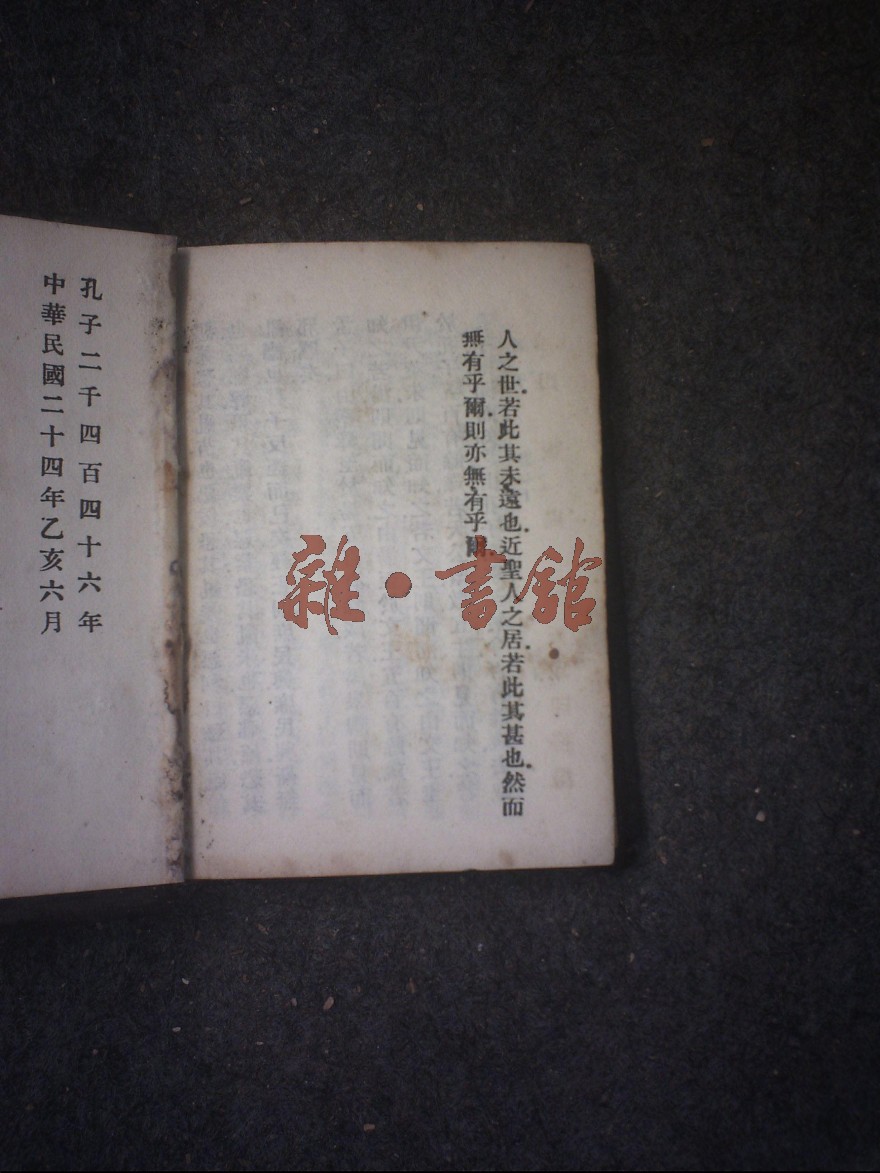 人之世若此其未遠也近聖人之居若此其甚也然而
無有乎爾則亦無有乎爾
孔子二千四百四十六年
中華民國二十四年乙亥六月
雜·書館